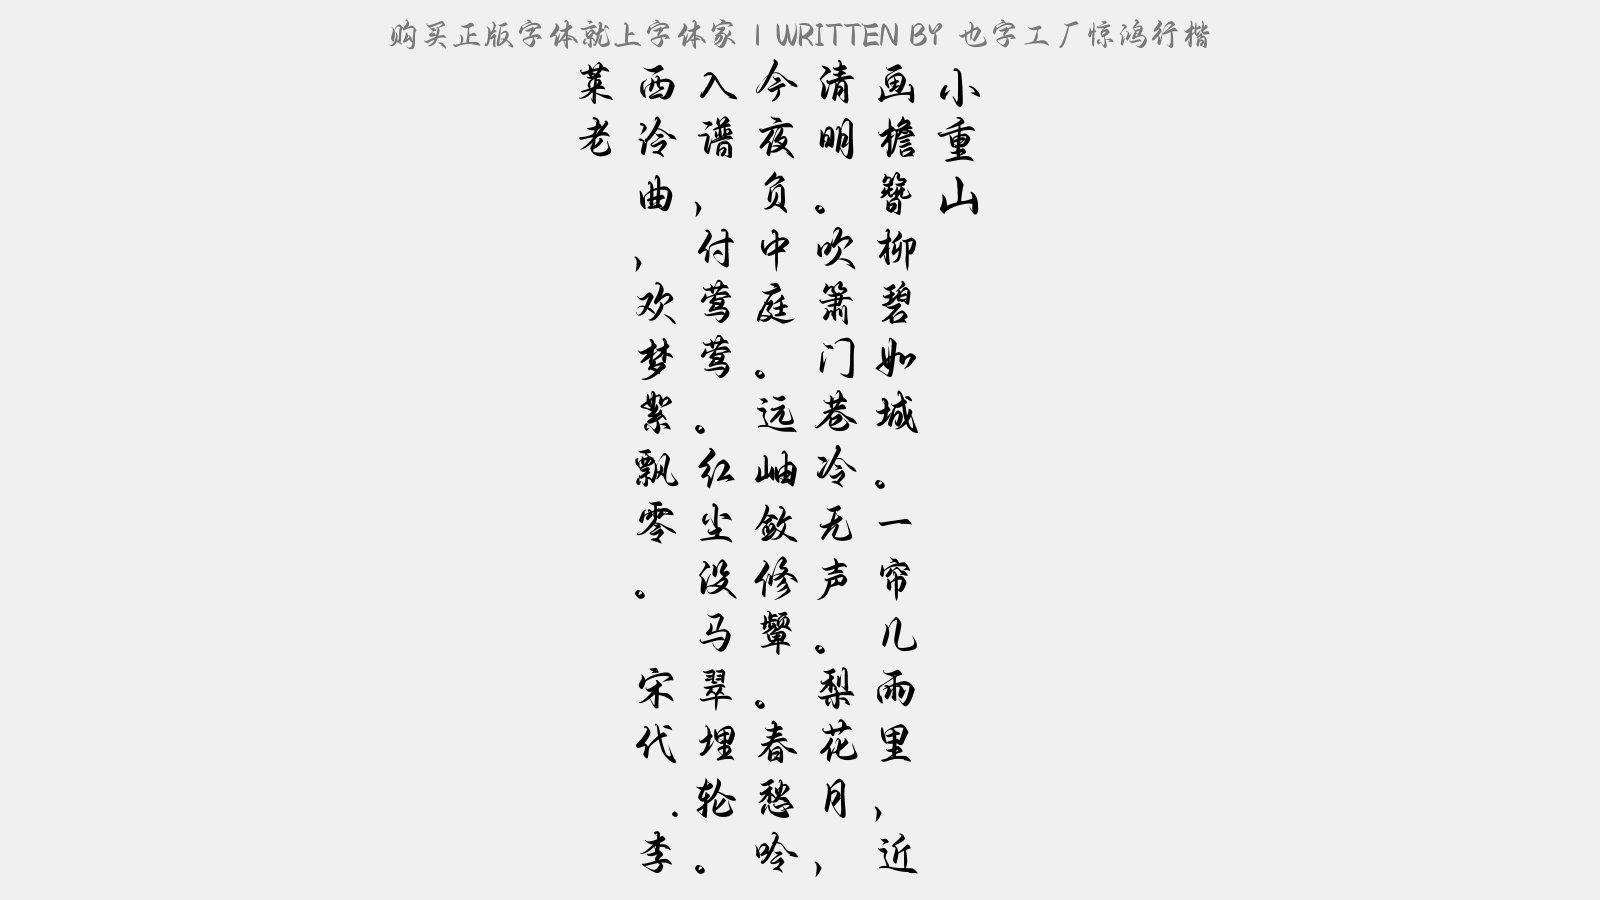 购买正版字体就上字体家 | WRITTEN BY 也字工厂惊鸿行楷
小重山
画檐簪柳碧如城。一帘几雨里，近
清明。吹箫门巷冷无声。梨花月，
今夜负中庭。远岫敛修颦。春愁吟
入谱，付莺莺。红尘没马翠埋轮。
西泠曲，欢梦絮飘零。 宋代.李
莱老